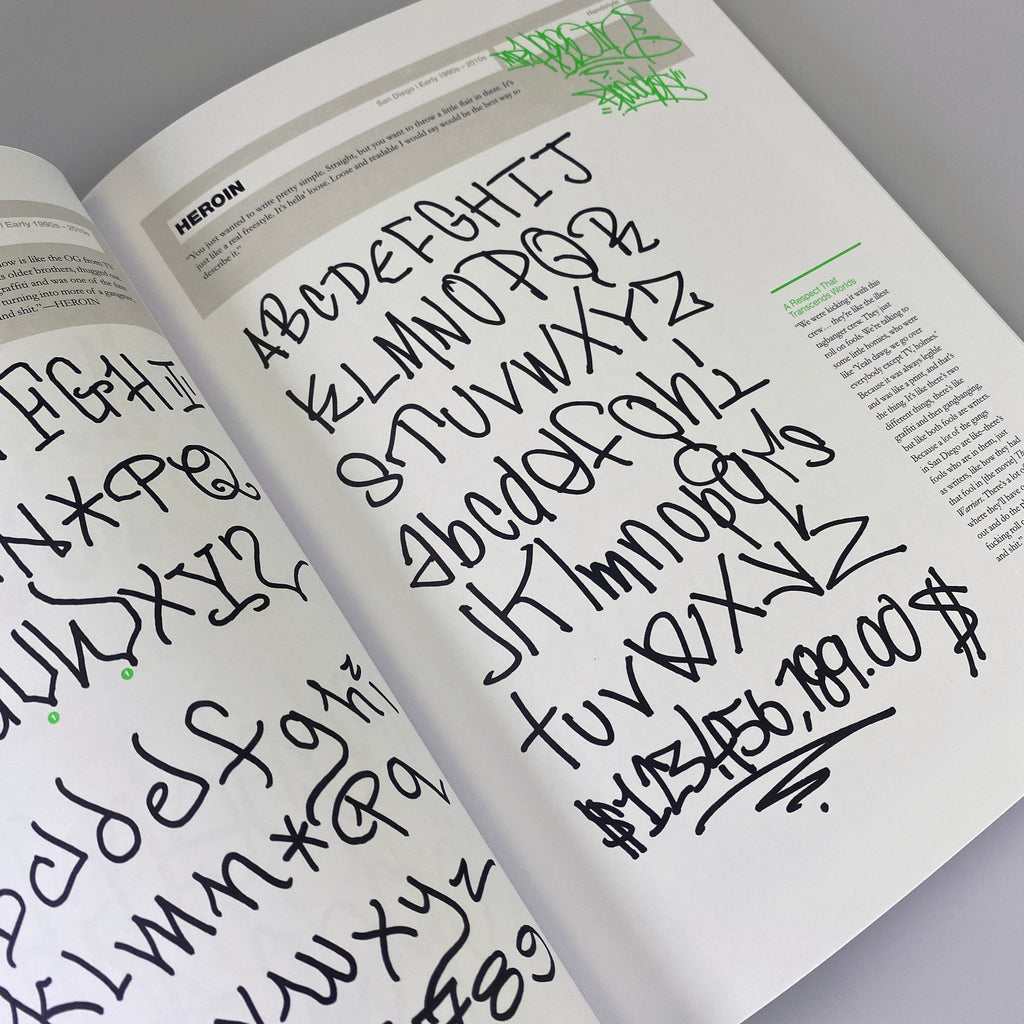 | Early 1990s – 2010s
how is like the OG from TV
s older brothers, thugged out
graffiti and was one of the first
turning into more of a gangster
and shit.” —HEROIN
F G H I J
N * P Q
U V W X Y Z
1
1
c d d e f g h i
k L m n * P q
v w x y z
7 8 9
Handstyle
San Diego | Early 1990s – 2010s
HEROIN
“You just wanted to write pretty simple. Straight, but you want to throw a little flair in there. It's
just like a real freestyle. It's hella' loose. Loose and readable I would say would be the best way to
describe it.”
A B C D E F G H I J
K L M N O P Q R
S T U V W X Y Z
A b c d e f g h i
J K l m n o p q r s
t u v w x y z
$123,456,789.00 $
A Respect That
Transcends Worlds
“We were kicking it with this
crew… they're like the illest
tagbanger crew. They just
roll on fools. We're talking to
some little homies, who were
like ‘Yeah dawg, we go over
everybody except TV, holmes.’
Because it was always legible
and was like a pent, and that's
the thing. It's like there's two
different things, there's like
graffiti and then gangbanging,
but like both fools are writers.
Because a lot of the gangs
in San Diego are like–there's
fools who are in them, just
as writers, like how they had
that fool in [the movie] The
Warriors. There's a lot
where they'll have
out and do the
fucking roll
and shit.”